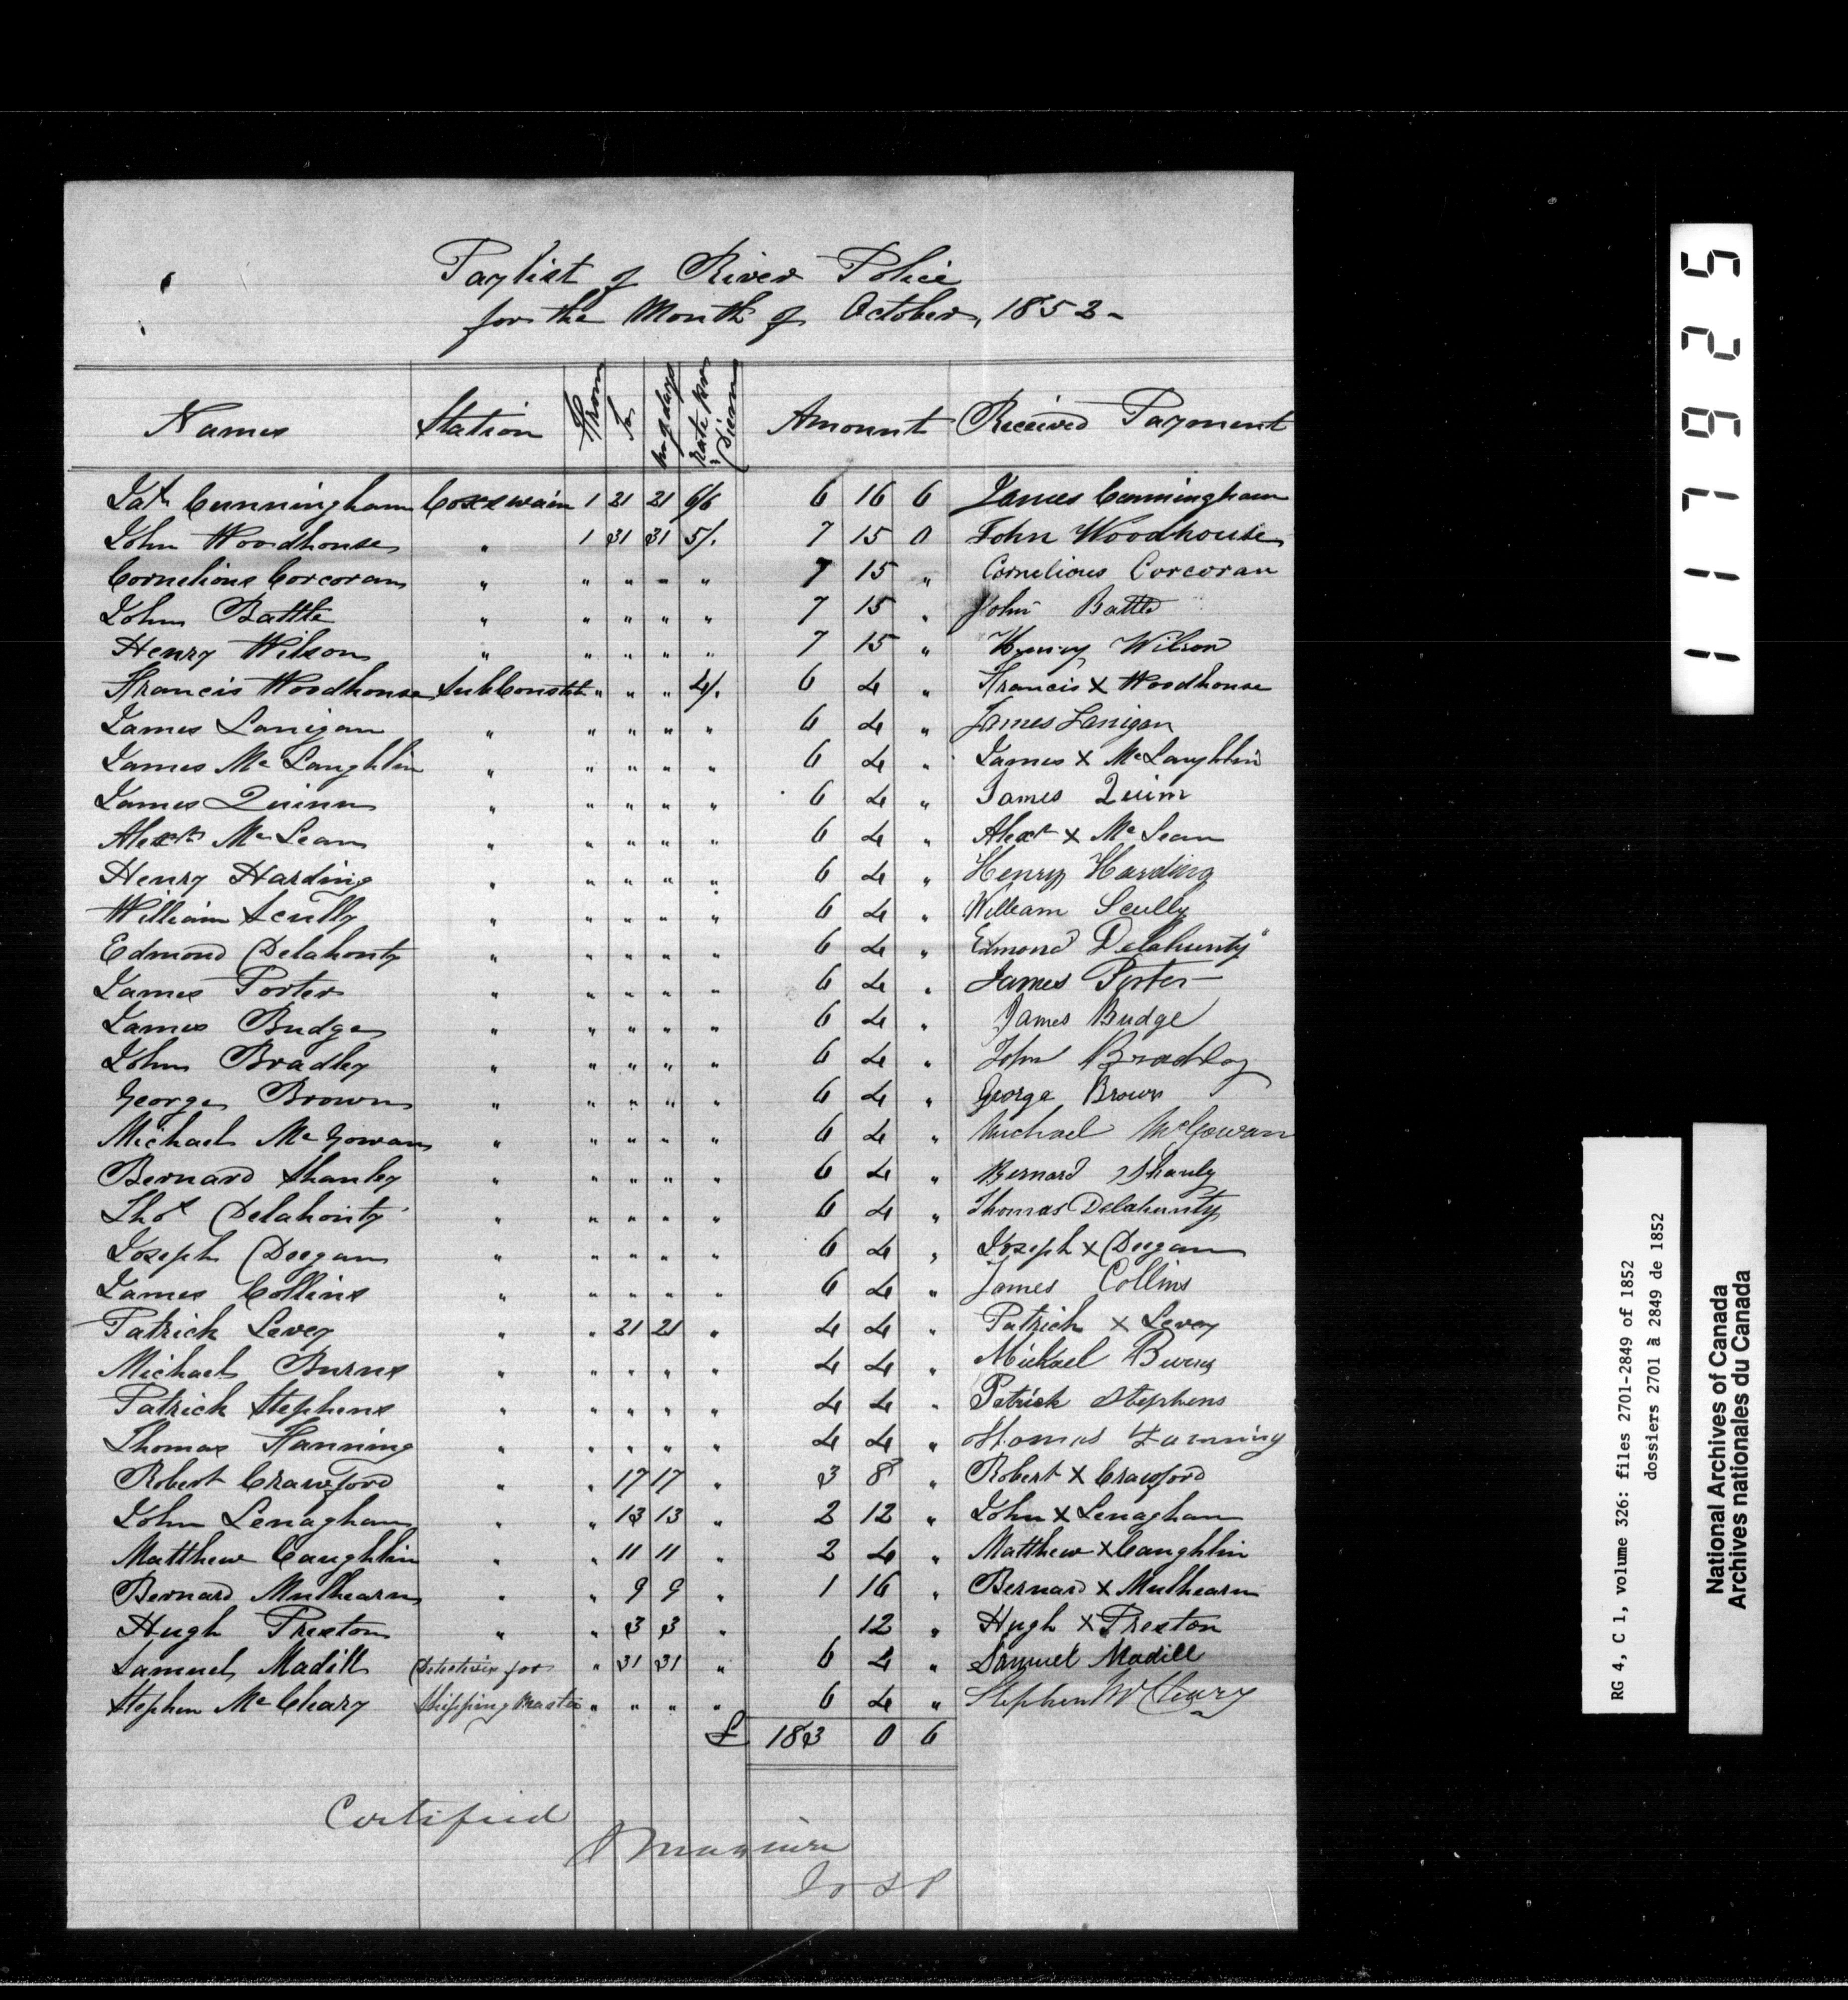 Paylist of River Police
for the Month of October, 1852-
Names Station From To No of days rate per Diem Amount Received Payment
Jas Cunningham Coxswain 1 21 21 6/6 6 16 6 James Cunningham
John Woodhouse " 1 31 31 5/. 7 15 0 John Woodhouse
Cornelious Corcoran " " " " " 7 15 " Cornelious Corcoran
John Battle " " " " " 7 15 " John Battle
Henry Wilson " " " " " 7 15 " Henry Wilson
Francis Woodhouse SubConstbl " " " 4/. 6 4 " Francis X Woodhouse
James Lanigan " " " " " 6 4 " James Lanigan
James McLaughlin " " " " " 6 4 " James X McLaughlin
James Quinn " " " " " 6 4 " James Quinn
Alexr McLean " " " " " 6 4 " Alexr X McLean
Henry Harding " " " " " 6 4 " Henry Harding
William Scully " " " " " 6 4 " William Scully
Edmond Delahonty " " " " " 6 4 " Edmond Delahunty
James Porter " " " " " 6 4 " James Porter
James Budge " " " " " 6 4 " James Budge
John Bradley " " " " " 6 4 " John Bradley
George Brown " " " " " 6 4 " George Brown
Michael McGowan " " " " " 6 4 " Michael McGowan
Bernard Shanley " " " " " 6 4 " Bernard Shanly
Thos Delahonty " " " " " 6 4 " Thomas Delahunty
Joseph Deegan " " " " " 6 4 " Joseph X Deegan
James Collins " " " " " 6 4 " James Collins
Patrick Levey " " 21 21 " 4 4 " Patrick X Levey
Michael Burns " " " " " 4 4 " Michael Burns
Patrick Stephens " " " " " 4 4 " Patrick Stephens
Thomas Fanning " " " " " 4 4 " Thomas Fanning
Robert Crawford " " 17 17 " 3 8 " Robert X Crawford
John Lenaghan " " 13 13 " 2 12 " John X Lenaghan
Matthew Caughlin " " 11 11 " 2 4 " Matthew X Caughlin
Bernard Mulhearn " " 9 9 " 1 16 " Bernard X Mulhearn
Hugh Preston " " 3 3 " 12 " Hugh X Preston
Samuel Madill Detective for " 31 31 " 6 4 " Samuel Madill
Stephen McCleary Shipping Master " " " " 6 4 " Stephen McCleary
£ 183 0 6
Certified
Maguire
J S P
117925
RG 4, C 1, volume 326: files 2701-2849 of 1852
dossiers 2701 à 2849 de 1852
National Archives of Canada
Archives nationales du Canada